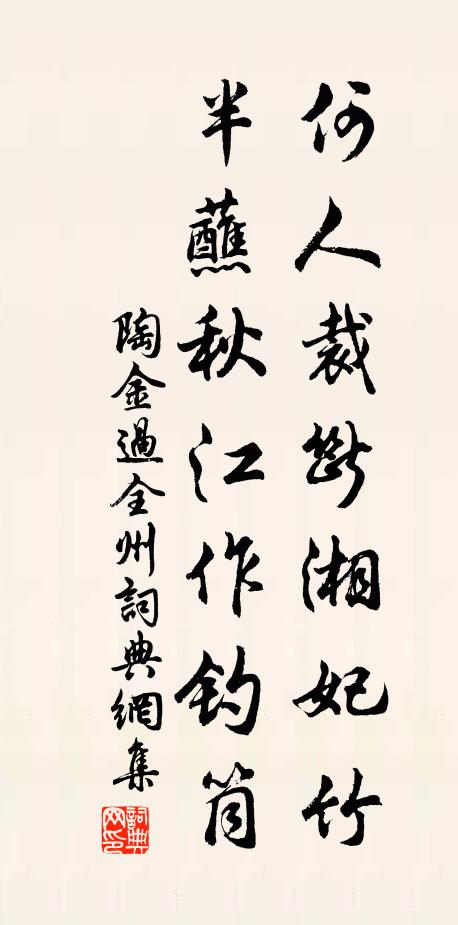 何人裁斷湘妃竹
半蘸秋江作釣筒
陶金過全州詞典網集
詞典網印